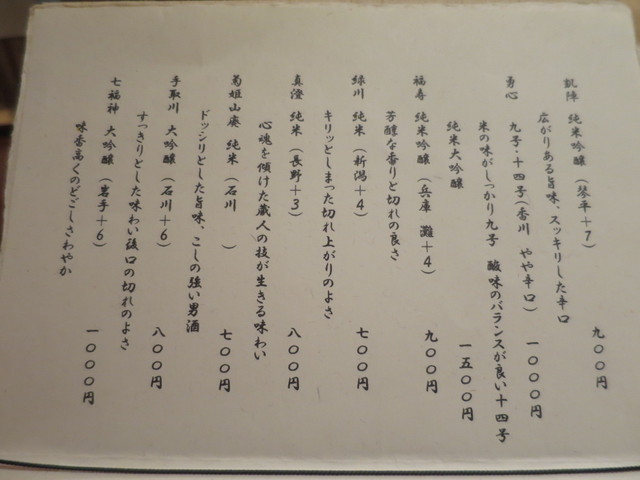 凱陣 純米吟醸（琴平＋7） 九〇〇円
広がりある旨味、スッキリした辛口
勇心 九号・十四号（香川 やや辛口） 一〇〇〇円
米の味がしっかり九号 酸味のバランスが良い十四号
純米大吟醸 一五〇〇円
福寿 純米吟醸（兵庫 灘＋4） 九〇〇円
芳醇な香りと切れの良さ
緑川 純米（新潟＋4） 七〇〇円
キリッとしまった切れ上がりのよさ
真澄 純米（長野＋3） 八〇〇円
心魂を傾けた蔵人の技が生きる味わい
菊姫山廃 純米（石川 ） 七〇〇円
ドッシリとした旨味、こしの強い男酒
手取川 大吟醸（石川＋6） 八〇〇円
すっきりとした味わい後口の切れのよさ
七福神 大吟醸（岩手＋6） 一〇〇〇円
味香高くのどごしさわやか